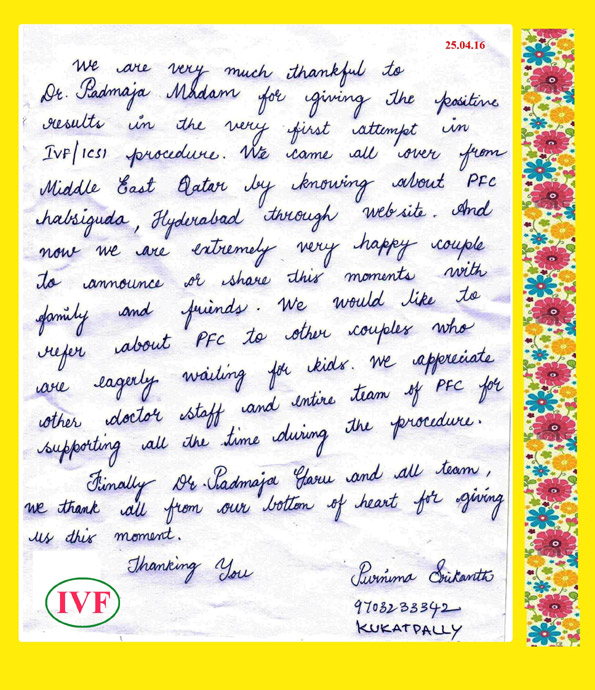 25.04.16
We are very much thankful to
Dr. Padmaja Madam for giving the positive
results in the very first attempt in
IVF/ICSI procedure. We came all over from
Middle East Qatar by knowing about PFC
habsiguda, Hyderabad through website. And
now we are extremely very happy couple
to announce or share this moments with
family and friends. We would like to
refer about PFC to other couples who
are eagerly waiting for kids. We appreciate
other doctor staff and entire team of PFC for
supporting all the time during the procedure.
Finally Dr. Padmaja Garu and all team,
we thank all from our bottom of heart for giving
us this moment.
Thanking You
Purnima Srikanth
9703233342
KUKATPALLY
IVF